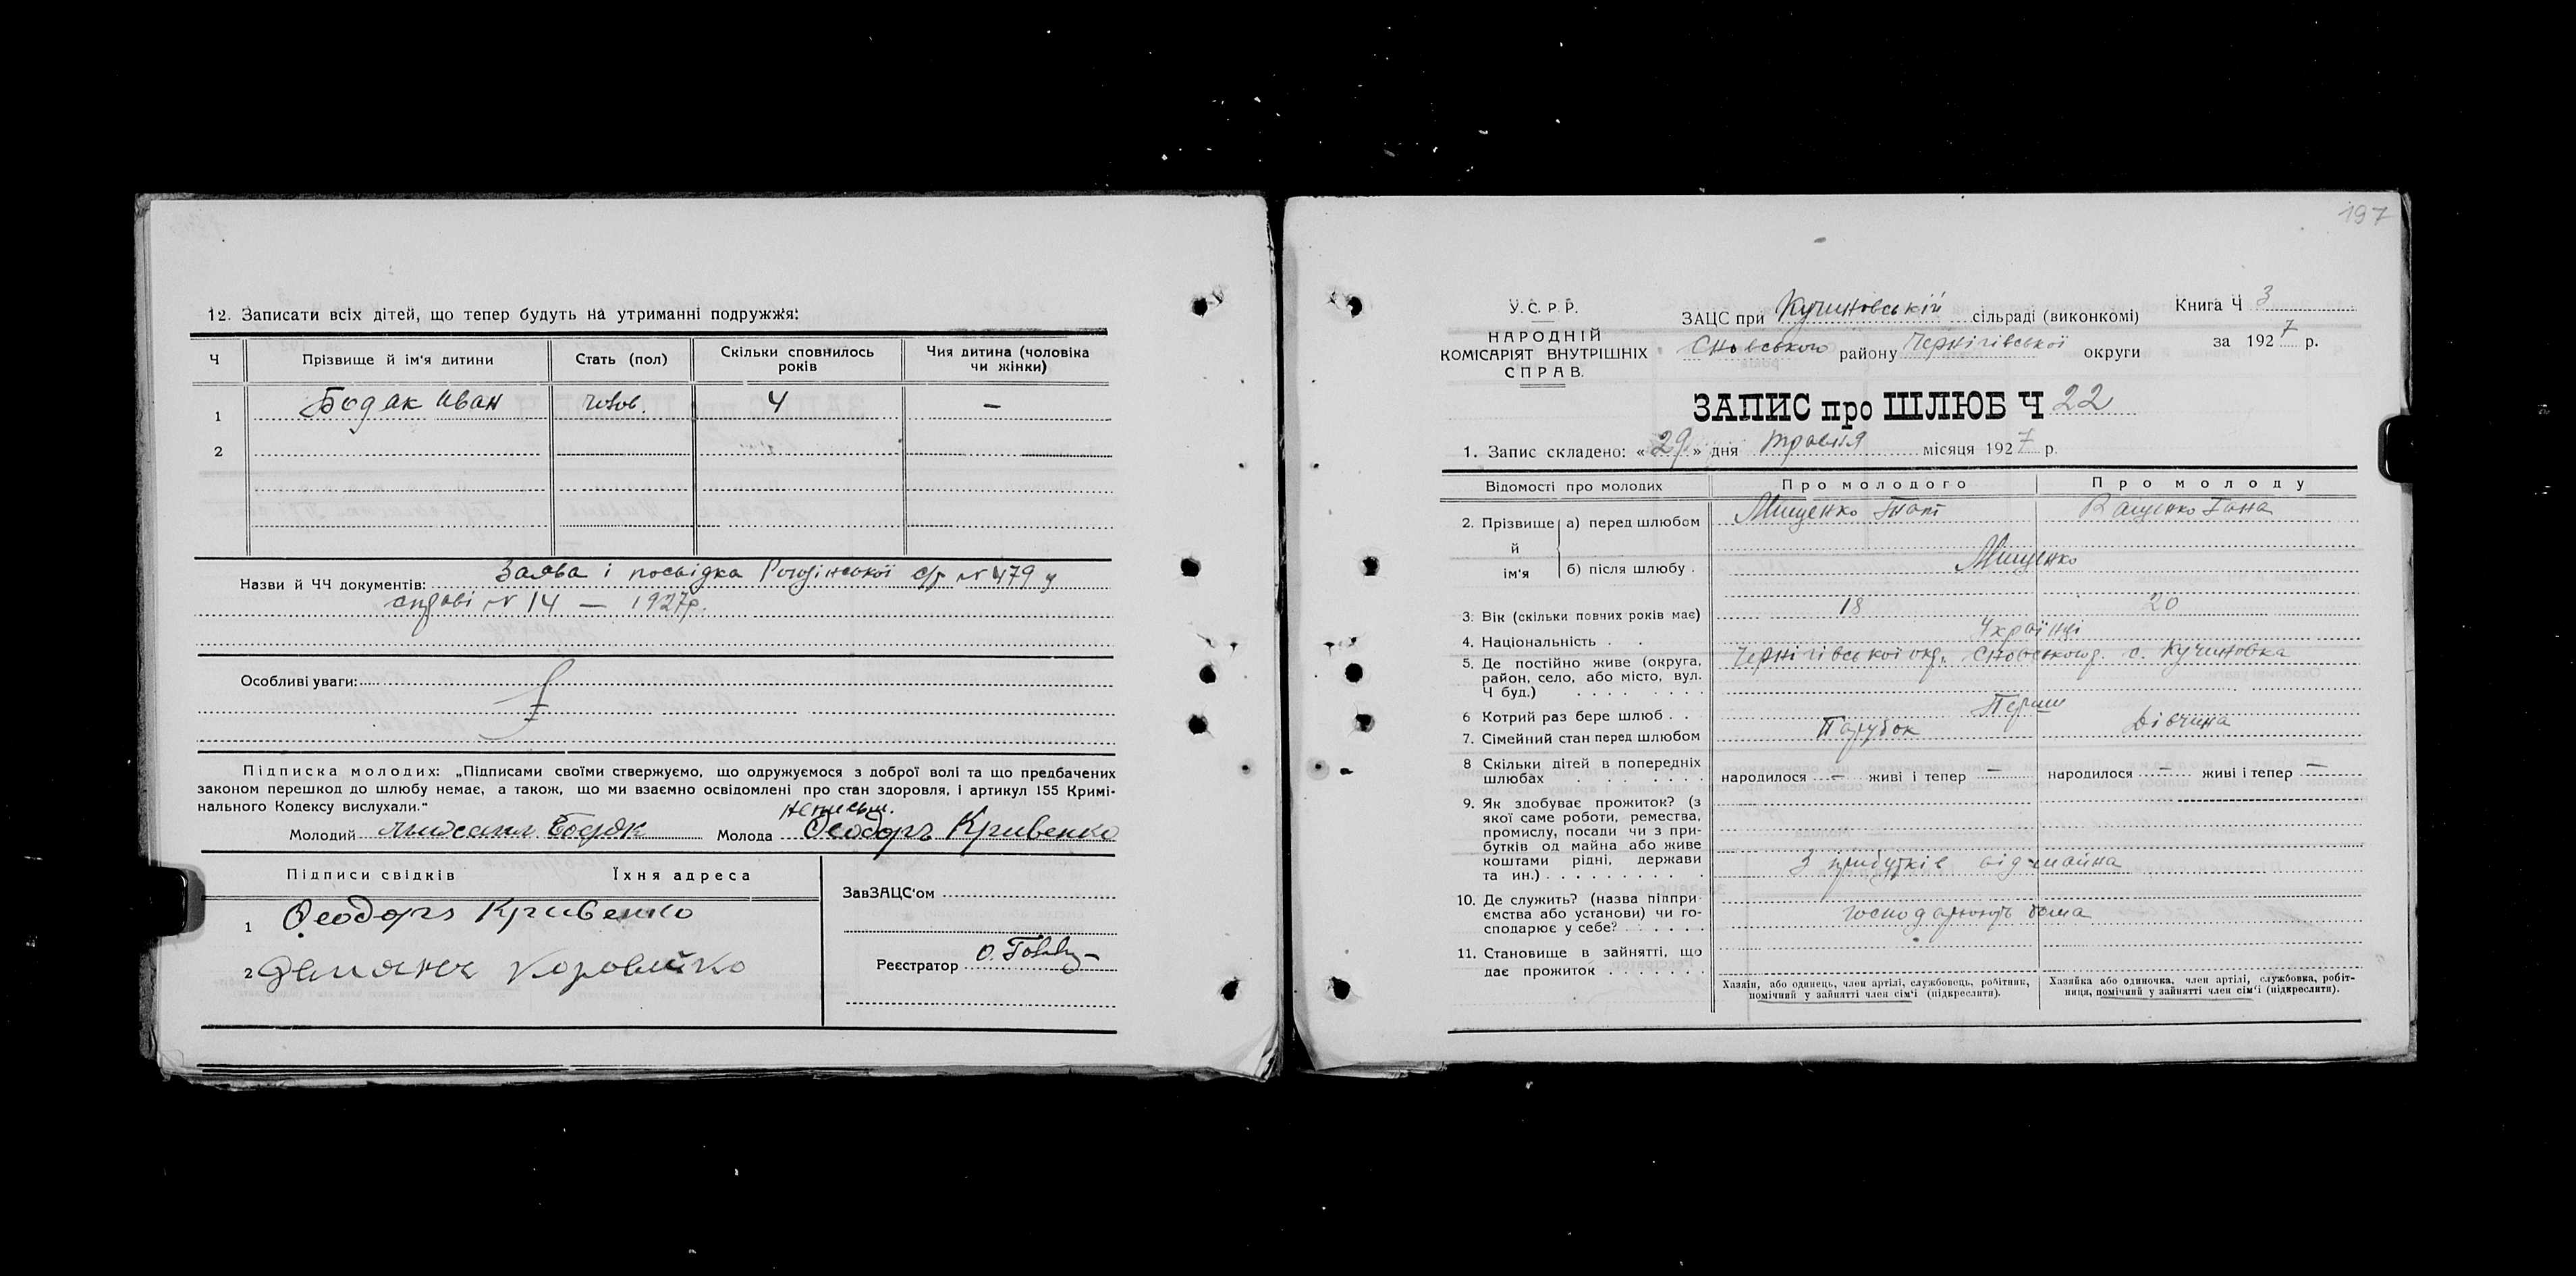 12. Записати всіх дітей, що тепер будуть на утриманні подружжя:
Ч Прізвище й ім'я дитини Стать (пол) Скільки сповнилось років Чия дитина (чоловіка чи жінки)
1 Бодак Иван чолов. 4 —
2
Назви й ЧЧ документів: Заява і посвідка с/р № 479 у
справі № 14 — 1927р.
Особливі уваги:
Підписка молодих: „Підписами своїми стверджуємо, що одружуємося з доброї волі та що предбачених
законом перешкод до шлюбу немає, а також, що ми взаємно освідомлені про стан здоровля, і артикул 155 Кримі-
нального Кодексу вислухали."
Молодий Бодак Молода неписьм. Феодоръ Кривенко
Підписи свідків Їхня адреса
1 Феодоръ Кривенко
2 Коровайко
ЗавЗАЦС'ом
Реєстратор
197
У.С.Р.Р.
НАРОДНІЙ
КОМІСАРІЯТ ВНУТРІШНІХ
СПРАВ.
ЗАЦС при Кучиновській сільраді (виконкомі)
Сновського району Чернігівської округи
Книга Ч 3
за 1927 р.
ЗАПИС про ШЛЮБ Ч 22
1. Запис складено: «29» дня травня місяця 1927 р.
Відомості про молодих Про молодого Про молоду
2. Прізвище й ім'я а) перед шлюбом Мищенко Гнат Ващенко Гана
б) після шлюбу . Мищенко
3. Вік (скільки повних років має) 18 20
4. Національність . . Українці
5. Де постійно живе (округа,
район, село, або місто, вул.
Ч буд.) . . . . . . . .
Чернігівської окр. Сновського р. с. Кучиновка
6 Котрий раз бере шлюб . . Перши
7. Сімейний стан перед шлюбом Парубок Дівчина
8 Скільки дітей в попередніх
шлюбах . . . . . . .
народилося — живі і тепер — народилося — живі і тепер —
9. Як здобуває прожиток? (з
якої саме роботи, ремества,
промислу, посади чи з при-
бутків од майна або живе
коштами рідні, держави
та ин.) . . . . . . . . .
З прибутків від майна
10. Де служить? (назва підпри
ємства або установи) чи го-
сподарює у себе? . . . . . .
господарюють дома
11. Становище в зайнятті, що
дає прожиток . . . . . . .
Хазяїн, або одинець, член артілі, службовець, робітник,
помічний у зайнятті член сім'ї (підкреслити).
Хазяйка або одиночка, член артілі, службовка, робіт-
ниця, помічний у зайнятті член сім'ї (підкреслити).